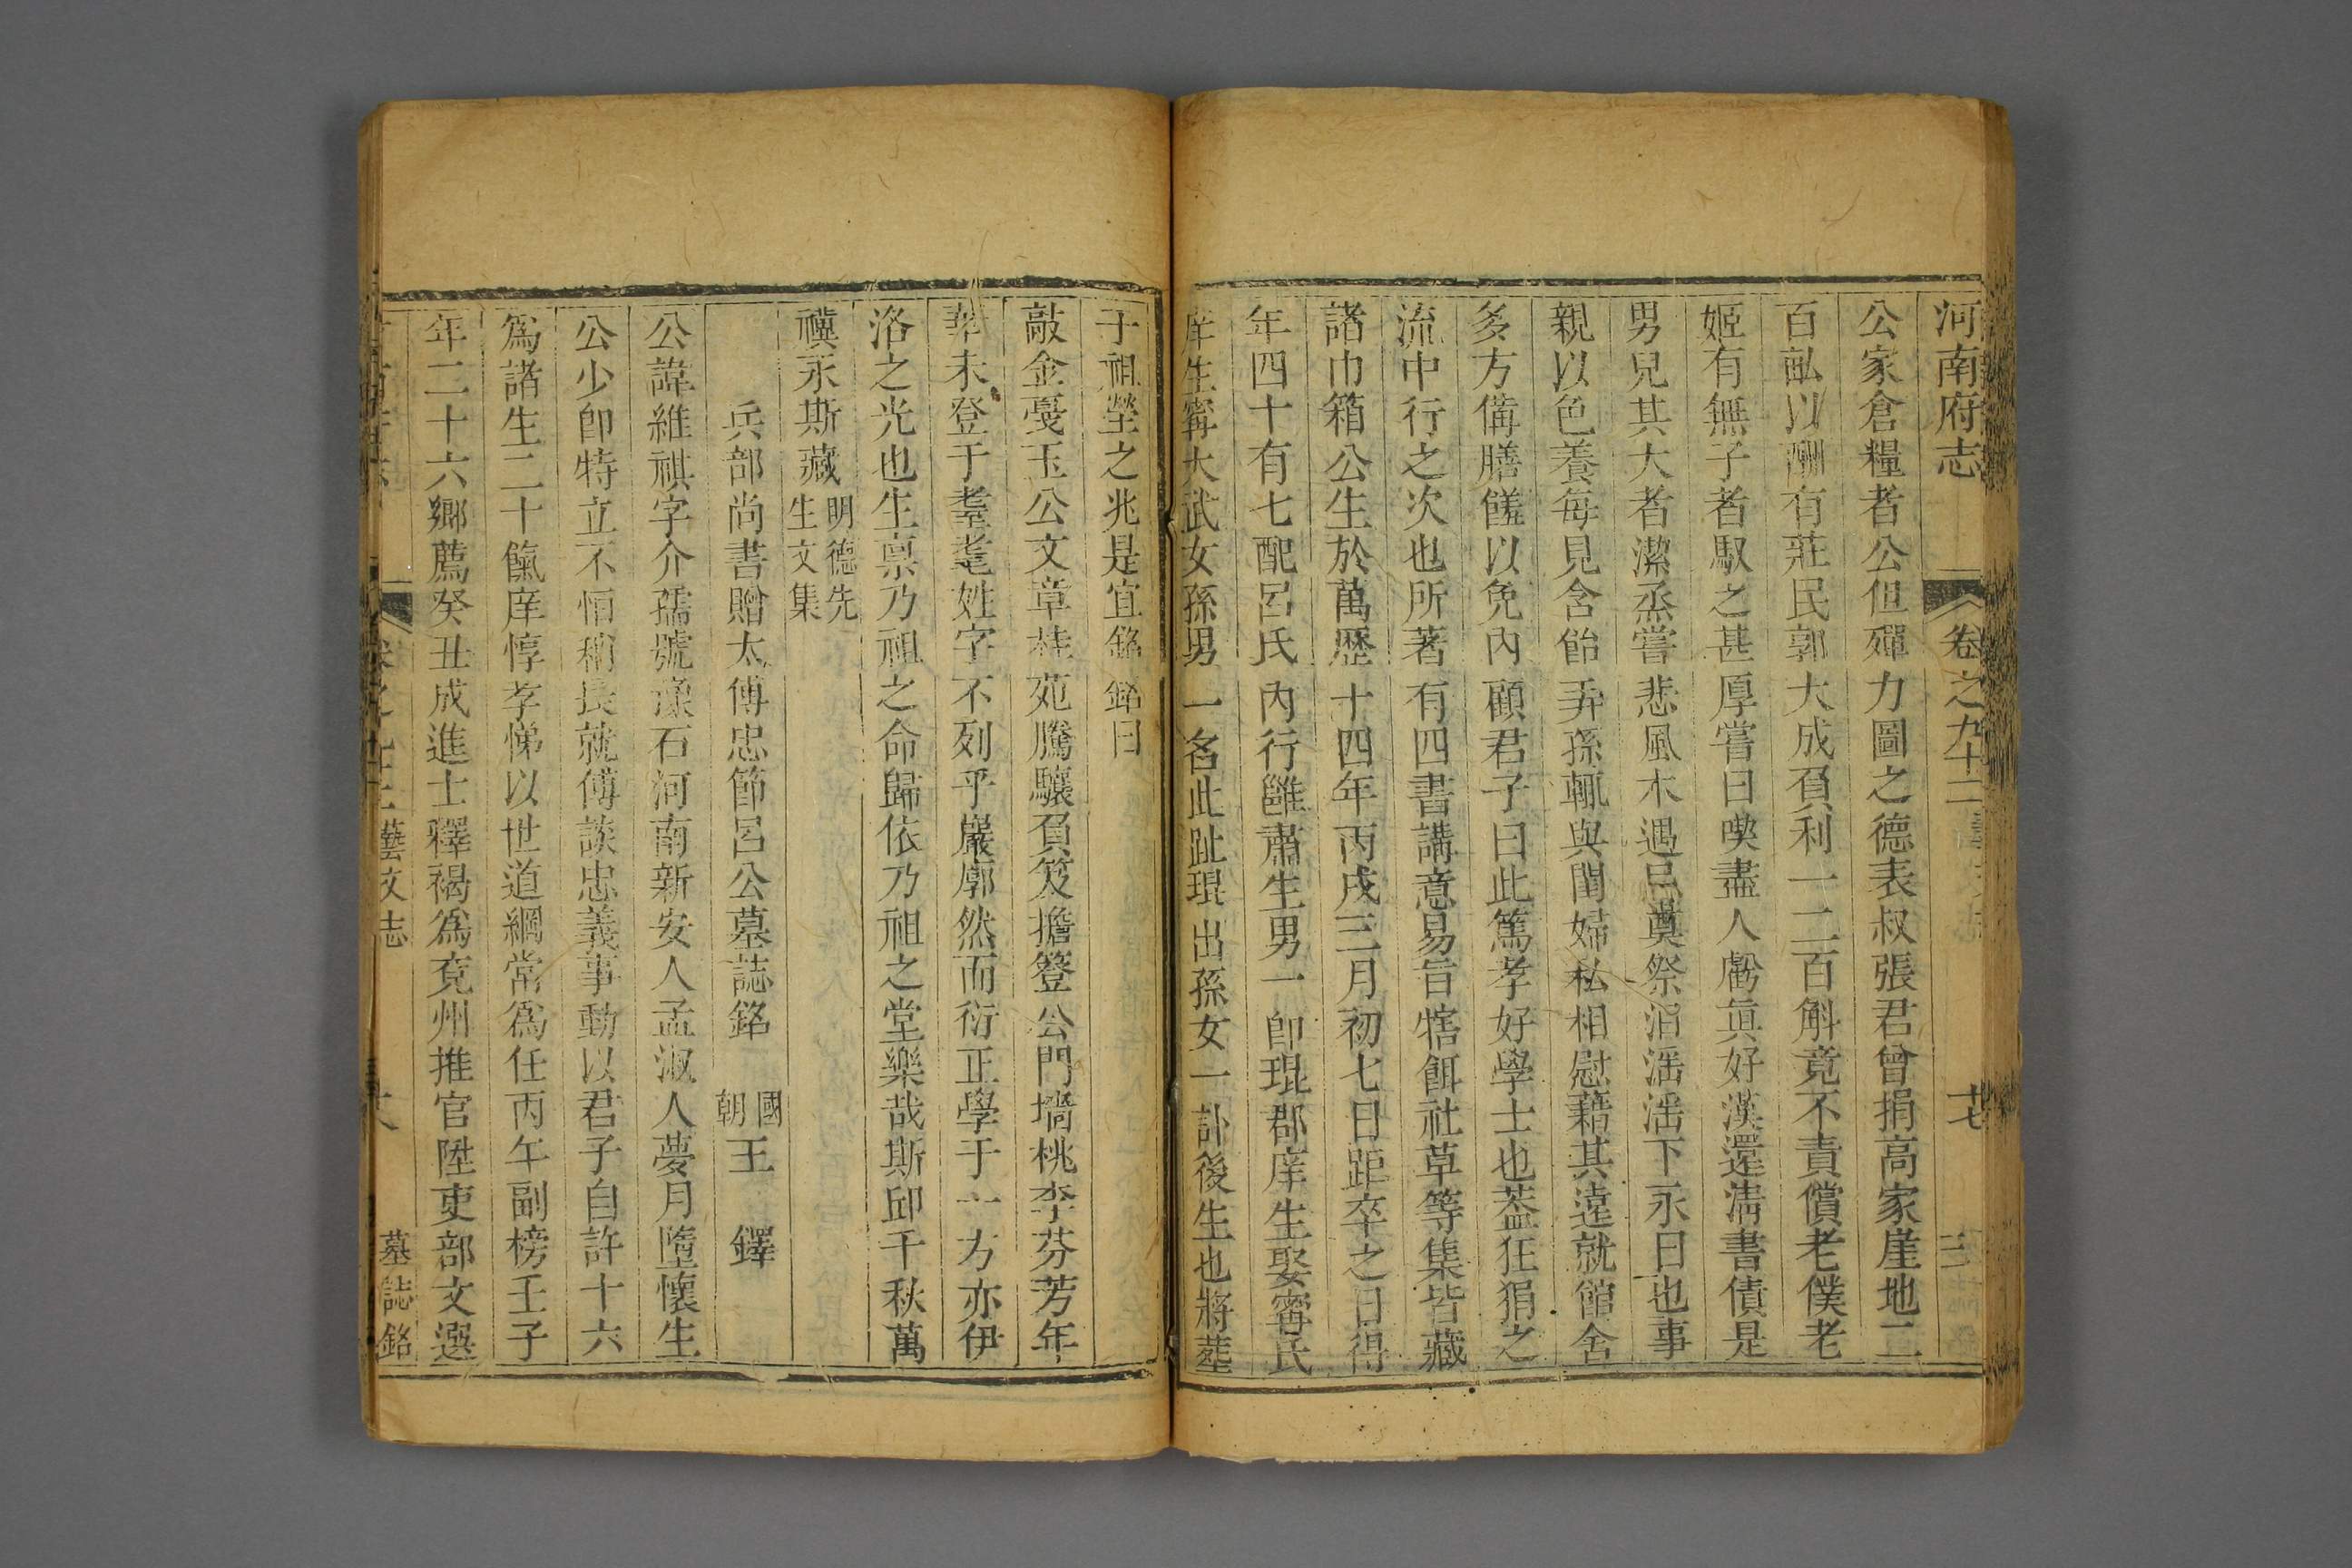 河南府志 卷之九十二 十七
公家倉糧者公但殫力圖之德表叔張君曾捐高家崖地二
百畝以酬有莊民郭大成負利一二百斛竟不責償老僕老
姬有無子者馭之甚厚嘗曰喫盡人虧眞好漢還淸書債是
男兒其大者潔烝嘗悲風木遇忌奠祭泪滛滛下永日也事
親以色養每見含飴弄孫輒與閨婦私相慰藉其遠就館舍
多方備膳饈以免內顧君子曰此篤孝好學士也葢狂狷之
流中行之次也所著有四書講意易旨犗餌社草等集皆藏
諸巾箱公生於萬歷十四年丙戌三月初七日距卒之日得
年四十有七配呂氏內行雝肅生男一卽琨郡庠生娶甯氏
庠生甯大武女孫男一名此趾琨出孫女一訃後生也將葬
于祖塋之兆是宜銘銘曰
敲金戞玉公文章桂苑騰驤負笈擔簦公門墻桃李芬芳年
華未登于耋耄姓字不列乎巖廊然而衍正學于一方亦伊
洛之光也生禀乃祖之命歸依乃祖之堂樂哉斯邱千秋萬
禩永斯藏 明德先生文集
兵部尚書贈太傅忠節呂公墓誌銘 國朝王 鐸
公諱維祺字介孺號濙石河南新安人孟淑人夢月墮懷生
公少卽特立不佰稍長就傅談忠義事動以君子自許十六
爲諸生二十餼庠惇孝悌以世道綱常爲任丙午副榜壬子
年二十六鄉薦癸丑成進士釋褐爲兗州推官陞吏部文選
藝文志 墓誌銘